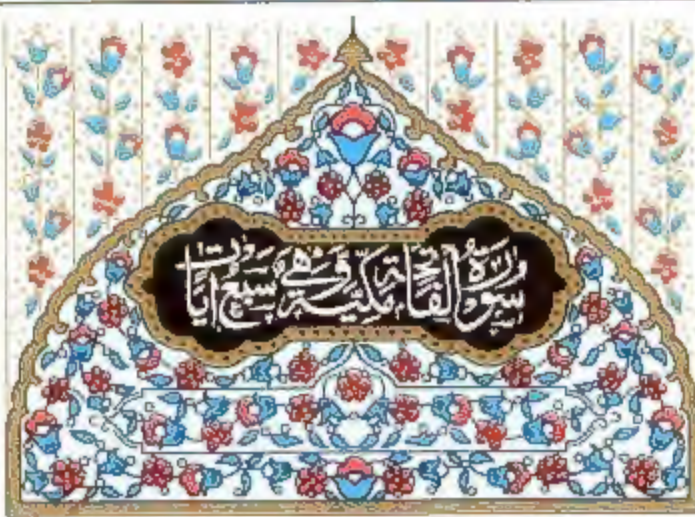 سورة الفاتحة مكية وهي سبع آيات